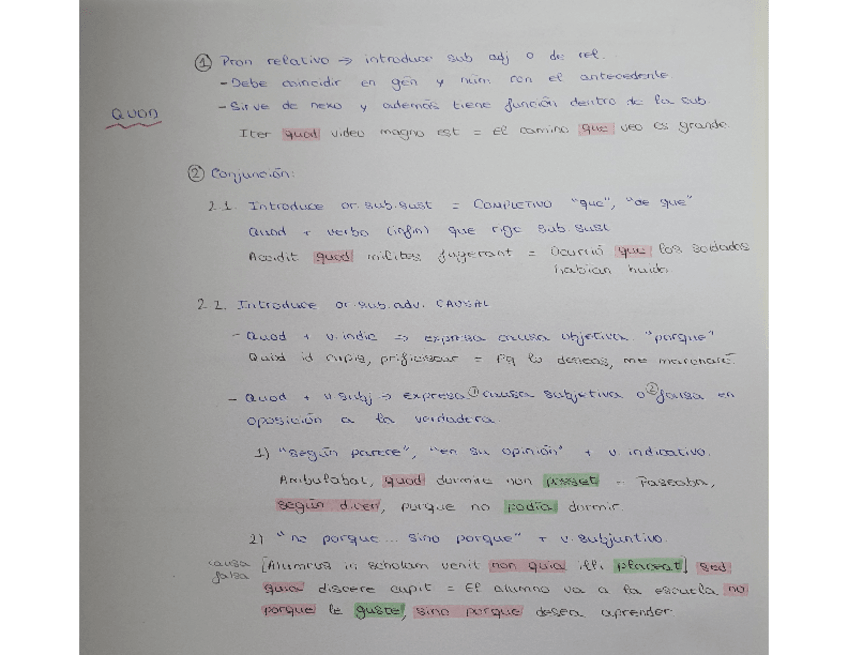 ① Pron relativo → introduce sub adj o de rel.
- Debe coincidir en gén y núm con el antecedente
QUOD
- Sirve de nexo y además tiene función dentro de la sub.
Iter quod video magno est = El camino que veo es grande.
② Conjunción:
2.1. Introduce or.sub.sust = COMPLETIVO "que", "de que"
Quod + verbo (infin) que rige sub.sust
Accidit quod milites fugerant = Ocurrió que los soldados
habían huido.
2.2. Introduce or.sub.adv. CAUSAL
- Quod + v.indic => expresa causa objetiva "porque"
id = lo deseas, me marcharé.
- Quod + v subj → expresa ① causa subjetiva o ② falsa en
oposición a la verdadera.
1) "según parece", "en su opinión" + v. indicativo.
quod non posset = Paseaba,
según dicen, porque no podía dormir.
2) "no porque... sino porque" + v. subjuntivo.
causa
falsa
[Alumnus in scholam venit non quia illi placeat] sed
quia discere cupit = El alumno va a la escuela no
porque le guste, sino porque desea aprender